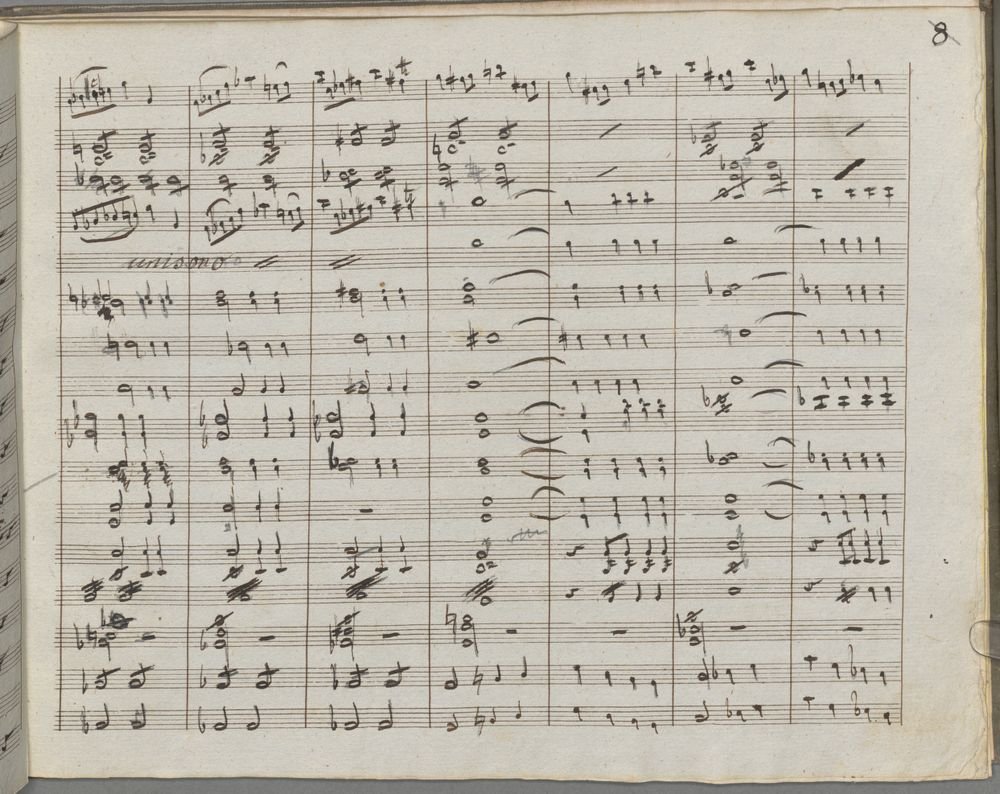 8
unisono